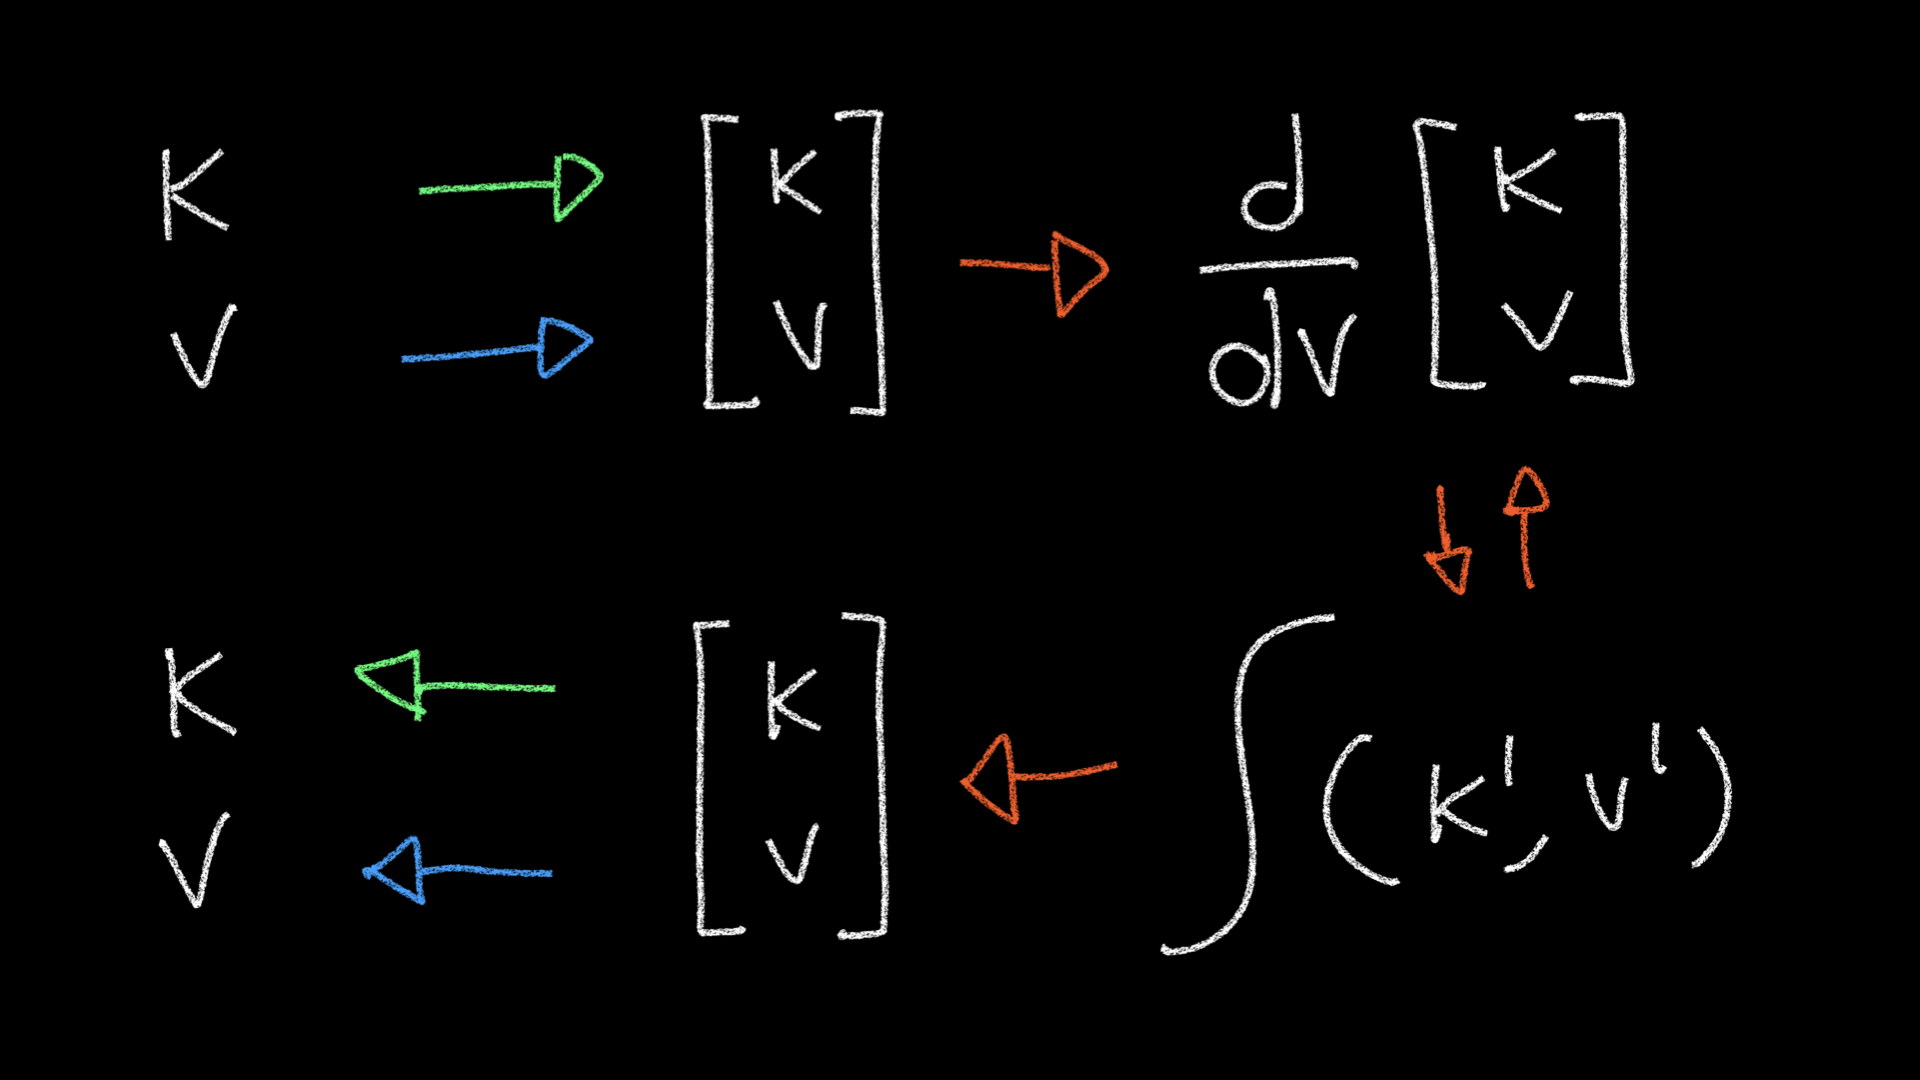 K → [ K
V ] → d/dV [ K
V ]
V →
↓ ↑
K ← [ K
V ] ← ∫ ( K', V' )
V ←